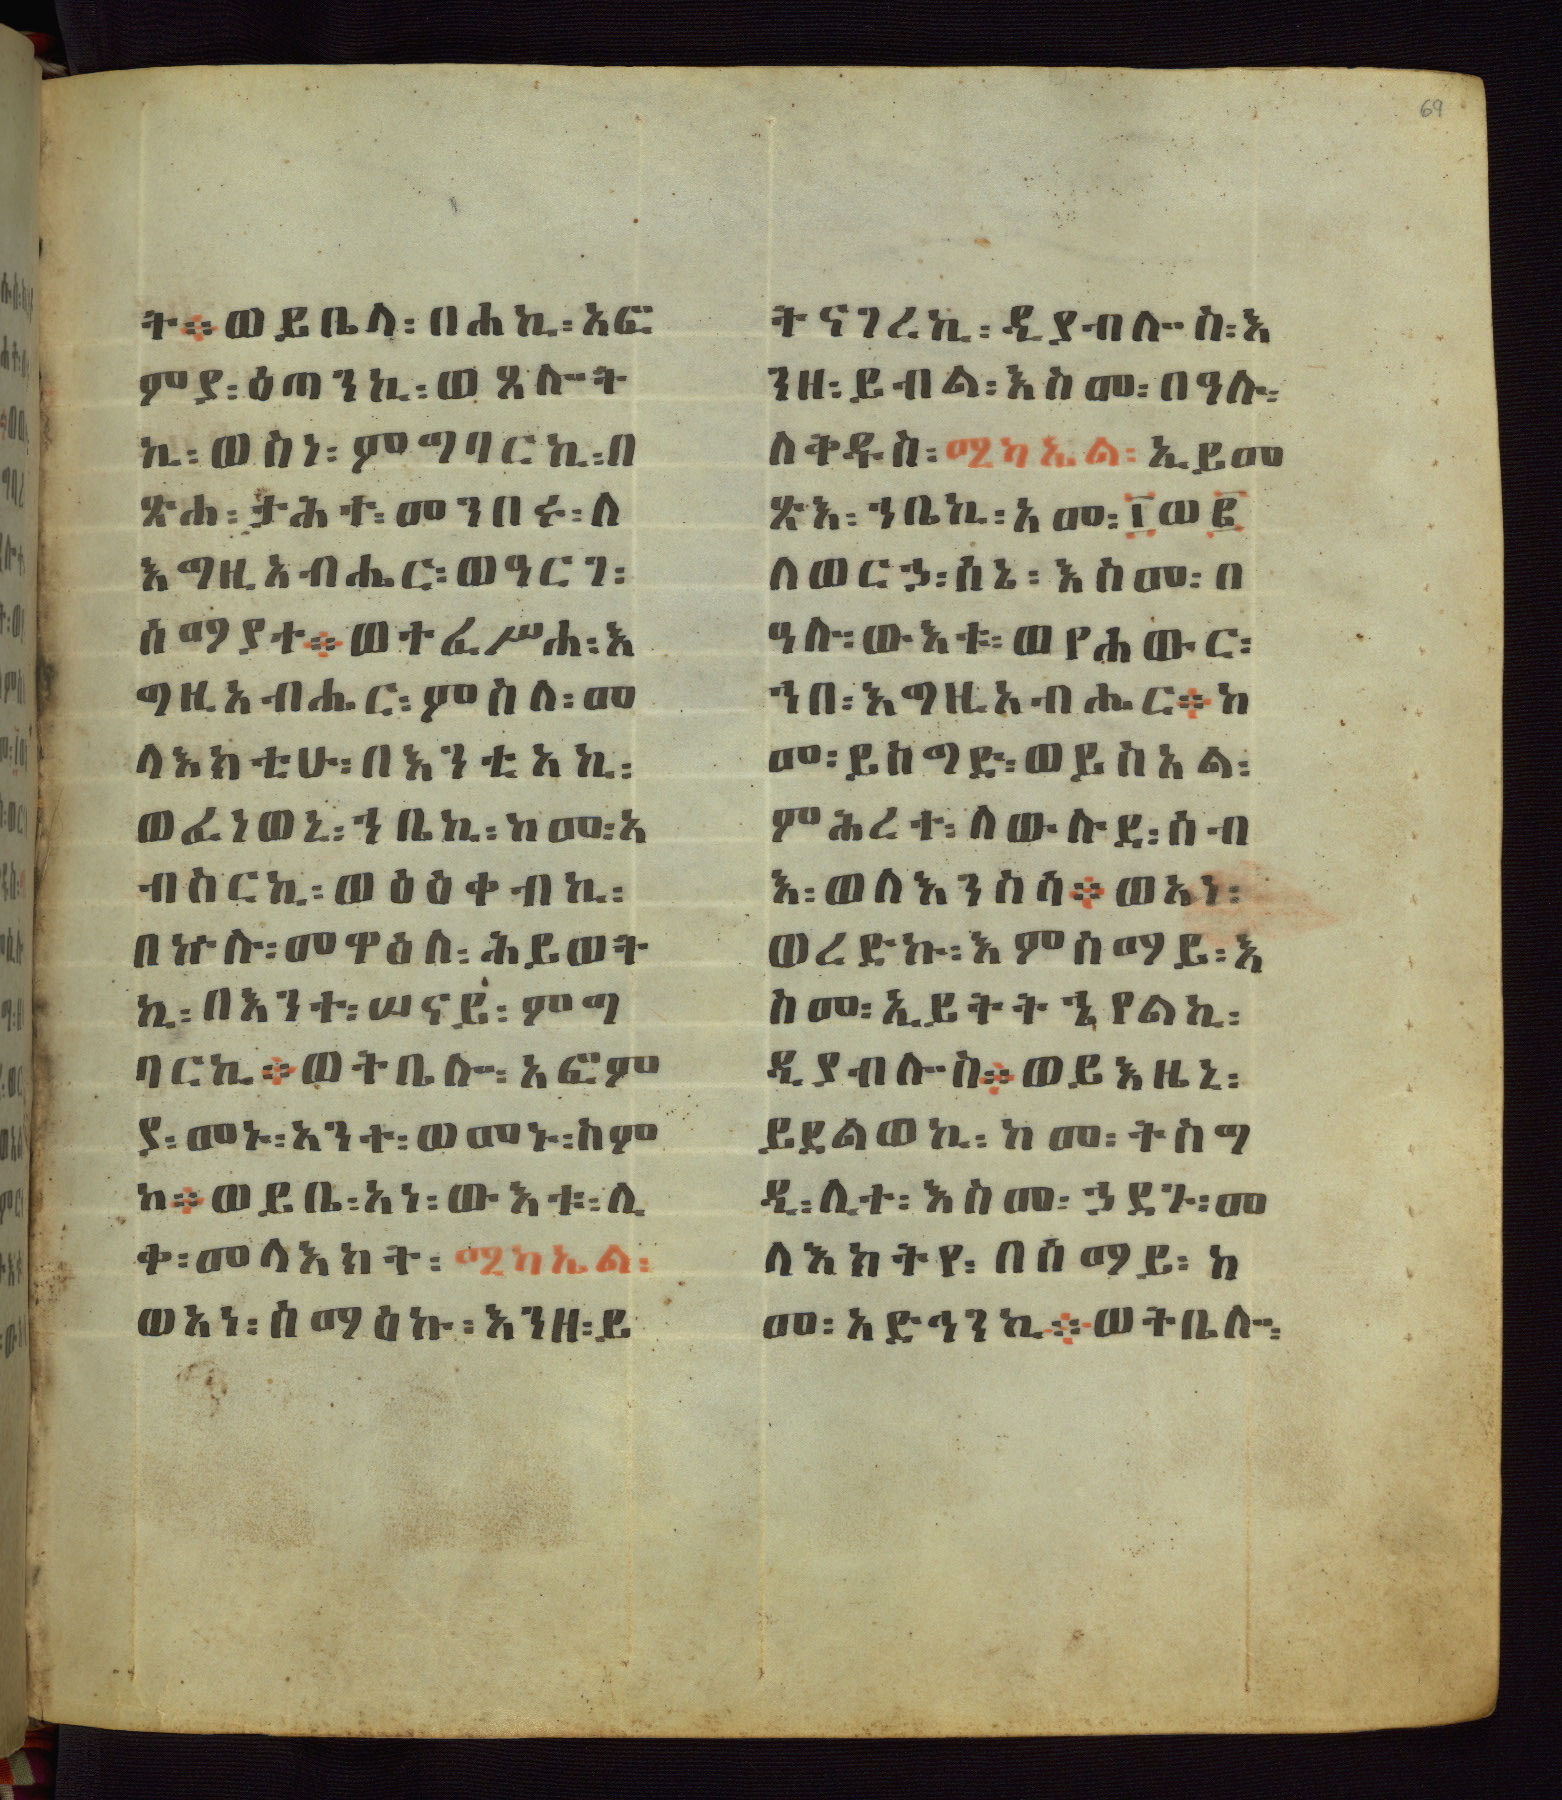 69
ት፨ወይቤላ፡በሐኪ፡አፎ
ምያ፡ዕጣንኪ፡ወጸሎት
ኪ፡ወስነ፡ምግባርኪ፡በ
ጽሐ፡ታሕተ፡መንበሩ፡ለ
እግዚአብሔር፡ወዓርገ፡
ሰማያተ፨ወተፈሥሐ፡እ
ግዚአብሔር፡ምስለ፡መ
ላእክቲሁ፡በእንቲአኪ፡
ወፈነወኒ፡ኀቤኪ፡ከመ፡አ
ብስርኪ፡ወዕዕቀብኪ፡
በኵሉ፡መዋዕለ፡ሕይወት
ኪ፡በእንተ፡ሠናይ፡ምግ
ባርኪ፨ወትቤሎ፡አፎም
ያ፡መኑ፡አንተ፡ወመኑ፡ስም
ከ፨ወይቤ፡አነ፡ውእቱ፡ሊ
ቀ፡መላእክት፡ሚካኤል፡
ወአነ፡ሰማዕኩ፡እንዘ፡ይ
ትናገረኪ፡ዲያብሎስ፡እ
ንዘ፡ይብል፡እስመ፡በዓሉ፡
ለቅዱስ፡ሚካኤል፡ኢይመ
ጽእ፡ኀቤኪ፡አመ፡፲ወ፪
ለወርኃ፡ሰኔ፡እስመ፡በ
ዓሉ፡ውእቱ፡ወየሐውር፡
ኀበ፡እግዚአብሔር፨ከ
መ፡ይስግድ፡ወይስአል፡
ምሕረተ፡ለውሉደ፡ሰብ
እ፡ወለእንስሳ፨ወአነ፡
ወረድኩ፡እምሰማይ፡እ
ስመ፡ኢይትትኄየልኪ፡
ዲያብሎስ፨ወይእዜኒ፡
ይደልወኪ፡ከመ፡ትስግ
ዲ፡ሊተ፡እስመ፡ኃደጉ፡መ
ላእክትየ፡በሰማይ፡ከ
መ፡አድኅንኪ፨ወትቤሎ፡